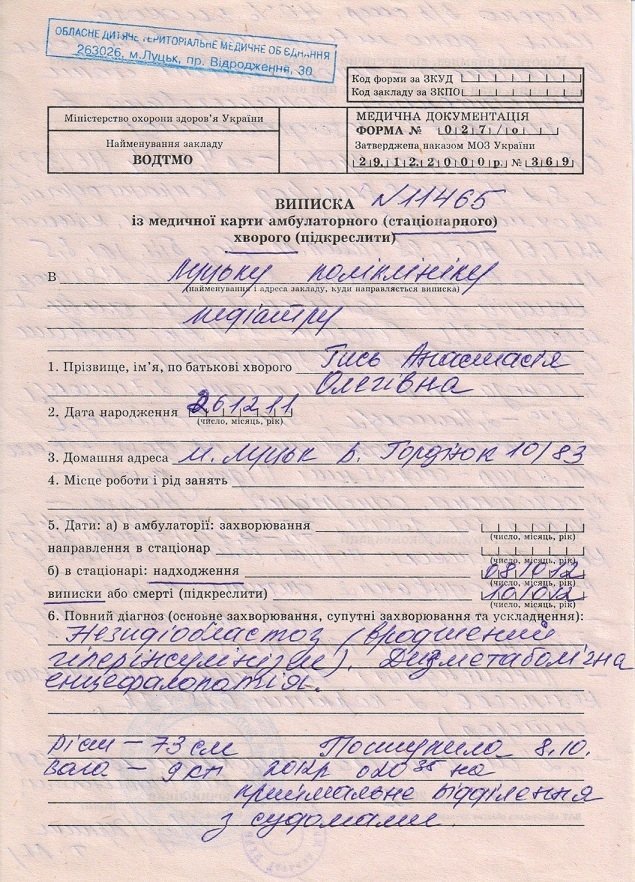 ОБЛАСНЕ ДИТЯЧЕ ТЕРИТОРІАЛЬНЕ МЕДИЧНЕ ОБ'ЄДНАННЯ
263026, м.Луцьк, пр. Відродження, 30
Код форми за ЗКУД
Код закладу за ЗКПО
Міністерство охорони здоров'я України
Найменування закладу
ВОДТМО
МЕДИЧНА ДОКУМЕНТАЦІЯ
ФОРМА № 027/о
Затверджена наказом МОЗ України
29.12.2000р. № 369
ВИПИСКА N11465
із медичної карти амбулаторного (стаціонарного)
хворого (підкреслити)
В Луцьку поліклініку
(найменування і адреса закладу, куди направляється виписка)
педіатру
1. Прізвище, ім'я, по батькові хворого Гись Анастасія
Олегівна
2. Дата народження 261211
(число, місяць, рік)
3. Домашня адреса м. Луцьк б. Гордіюк 10/83
4. Місце роботи і рід занять
5. Дати: а) в амбулаторії: захворювання
(число, місяць, рік)
направлення в стаціонар
(число, місяць, рік)
б) в стаціонарі: надходження 081012
(число, місяць, рік)
виписки або смерті (підкреслити) 101012
(число, місяць, рік)
6. Повний діагноз (основне захворювання, супутні захворювання та ускладнення):
Незидіобластоз (вроджений
гіперінсулінізм). Дизметаболічна
енцефалопатія.
Ріст – 73 см Поступила 8.10.
Вага – 9 кг 2012р о 20 35 на
приймальне відділення
з судомами.